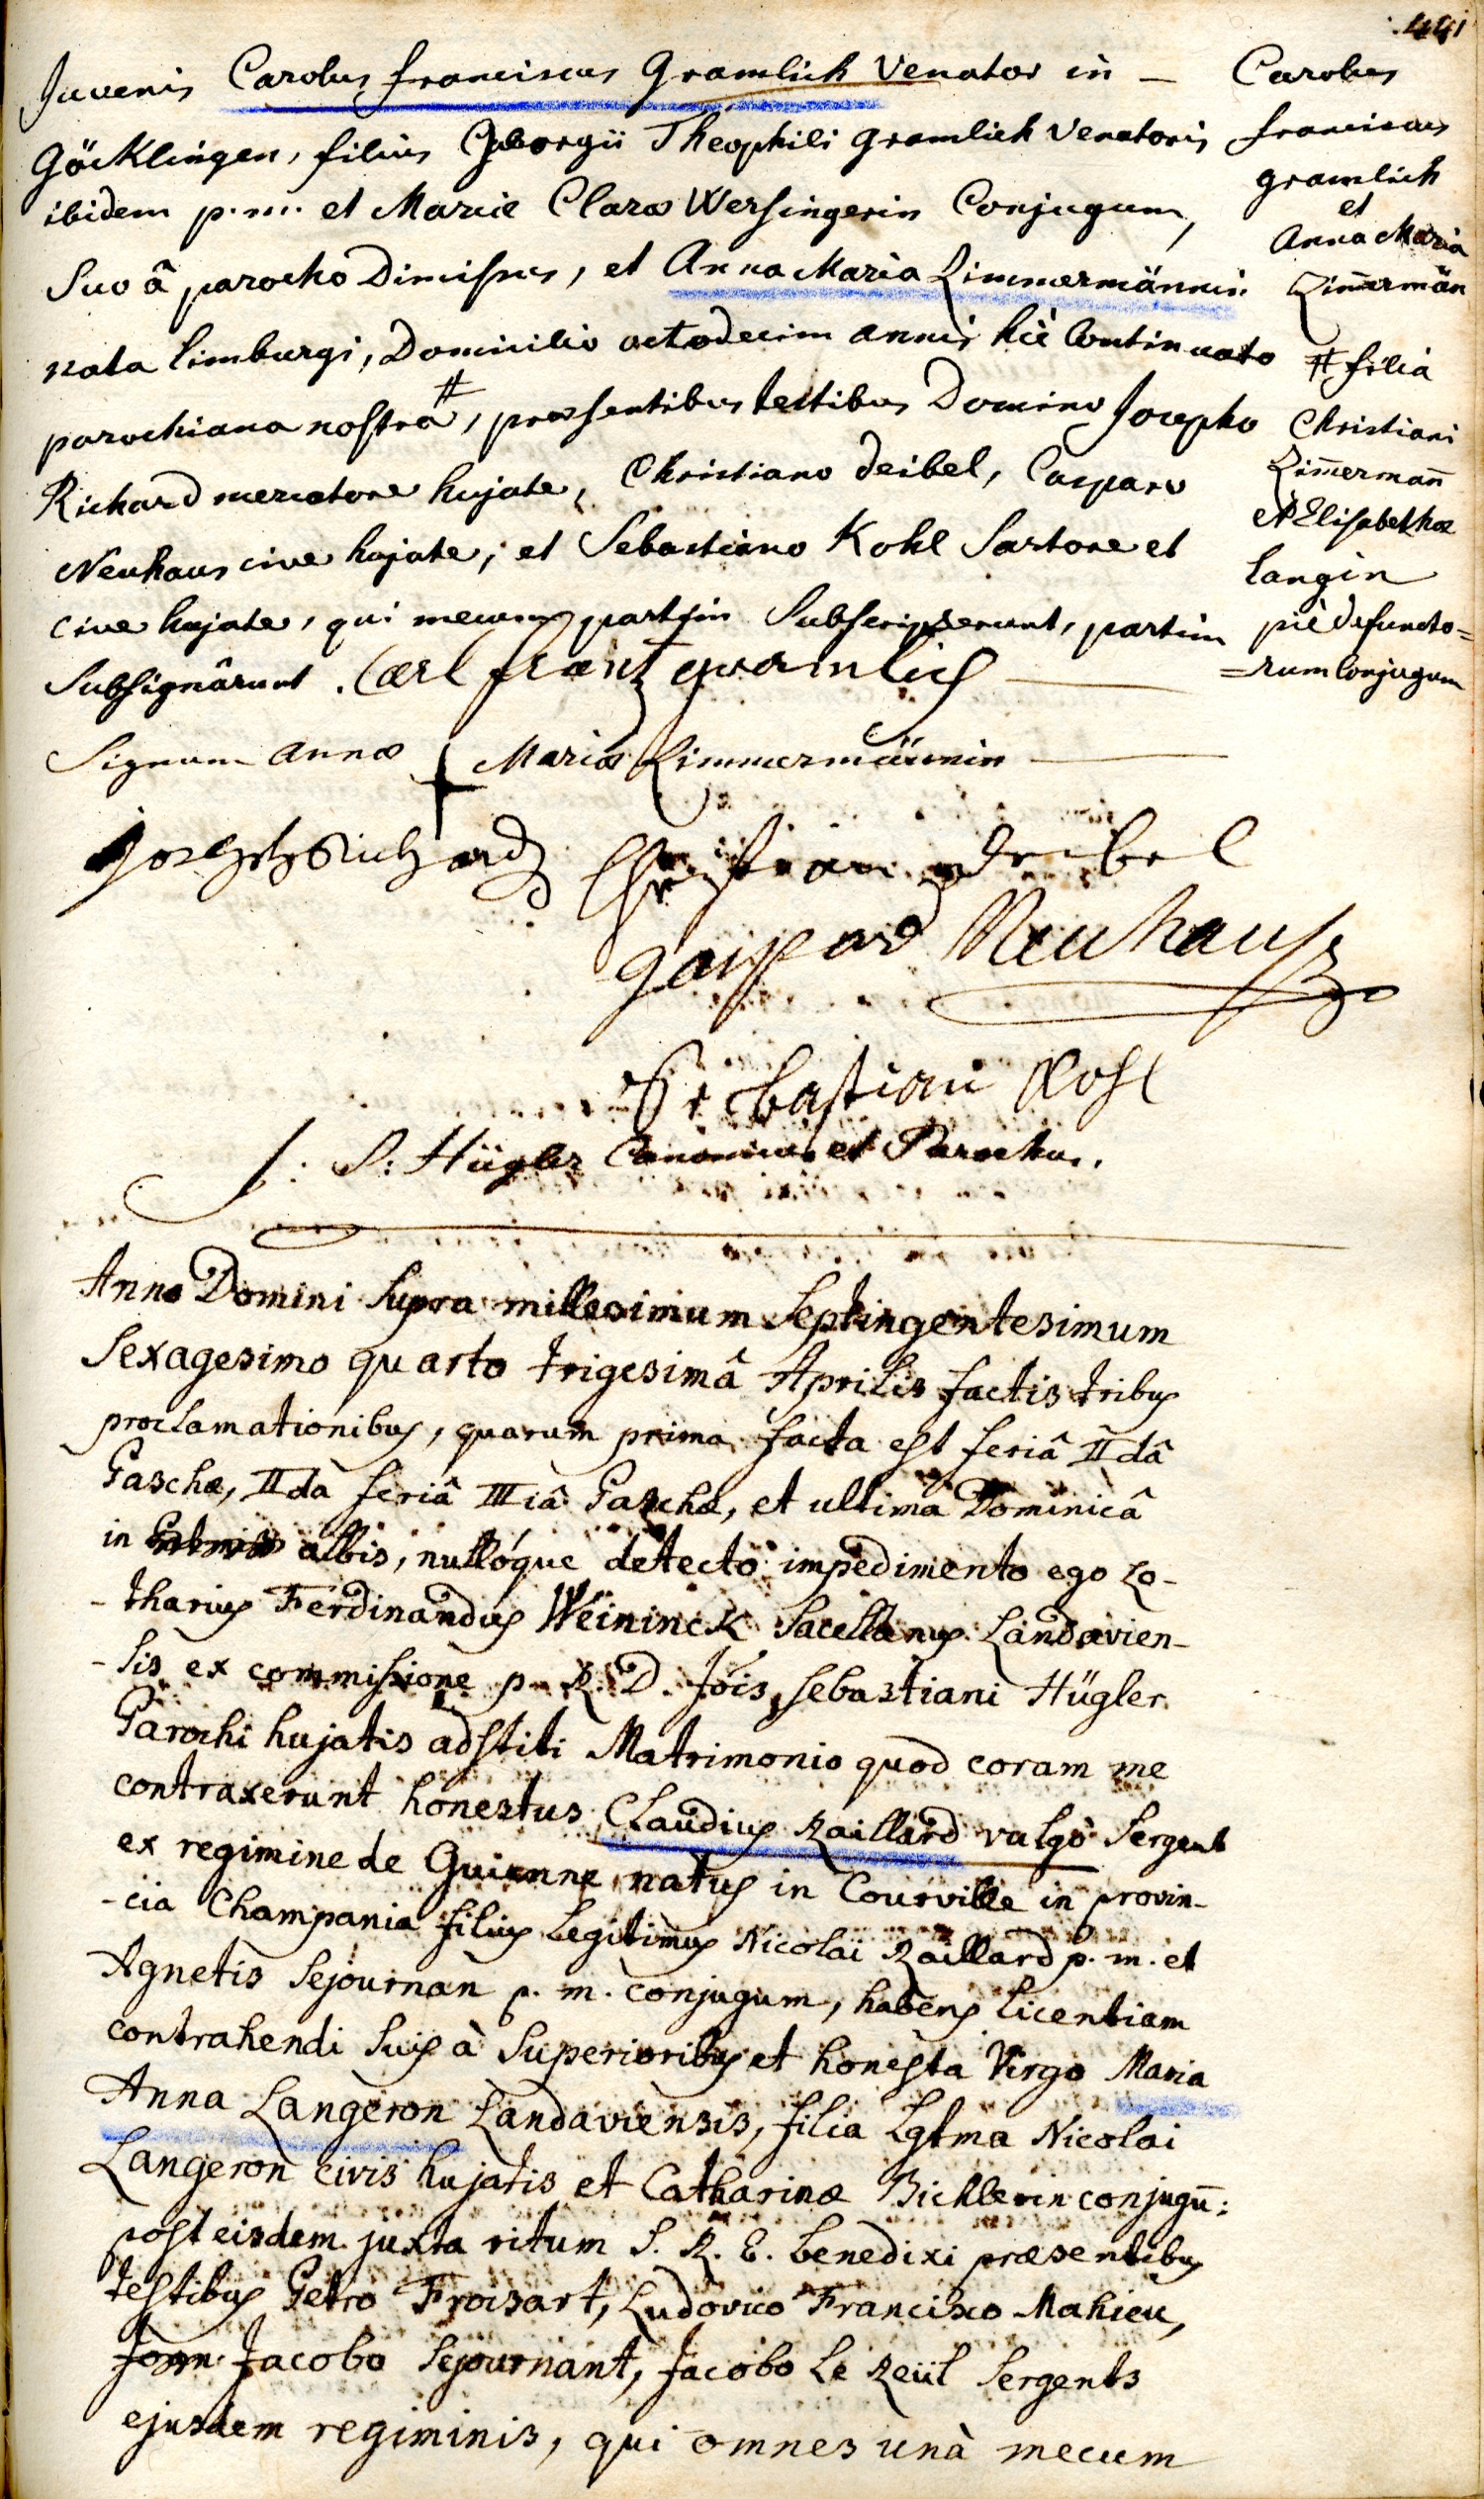 441
Juvenis Carolus franciscus Gramlich Venator in –
Göcklingen, filius Georgii Theophili gramlich Venatoris
ibidem p. m. et Mariæ Claræ Wersingerin Conjugum,
Suo â parocho Dimissus, et Anna Maria Zimmermännin
nata limburgi, Domicilio octodecim annis hic Continuato
parochiana nostra #, præsentibus testibus Domino Josepho
Richard mercatore hujate, Christiano deibel, Casparo
Neuhaus cive hujate, et Sebastiano Kohl Sartore et
cive hujate, qui mecum partim Subscripserunt, partim
Subsignârunt. Carl frantz gramlich
Signum annæ + Mariæ Zimmermännin
Joseph Richard Christian deibel
gaspard Neuhaus
Sebastian Kohl
J: S: Hügler Canonicus et Parochus.
Carolus
franciscus
gramlich
et
Anna Maria
Zim̄ermän
# filia
Christiani
Zim̄ermañ
et Elisabethæ
langin
piè defuncto=
=rum Conjugum
Anno Domini Supra millesimum Septingentesimum
Sexagesimo quarto trigesimâ Aprilis factis tribus
proclamationibus, quarum prima facta est feriâ IIdâ
Paschæ, IIda feriâ IIIiâ Paschæ, et ultima Dominicâ
in albis, nullóque detecto impedimento ego Lo-
-tharius Ferdinandus Weininck Sacellanus Landavien-
-sis ex commissione p. R. D. Jois Sebastiani Hügler
Parochi hujatis adstiti Matrimonio quod coram me
contraxerunt honestus Claudius Raillard vulgò Sergent
ex regimine de Guienne natus in Courville in provin-
-cia Champania filius Legitimus Nicolai Raillard p. m. et
Agnetis Sejournan p. m. conjugum, habens licentiam
contrahendi Suis à Superioribus et honesta Virgo Maria
Anna Langeron Landaviensis, filia Lgtma Nicolai
Langeron civis hujatis et Catharinæ Bichlerin conjugū:
post eisdem juxta ritum S. R. E. benedixi præsentibus
testibus Petro Froisart, Ludovico Francisco Mahieu,
Joan Jacobo Sejournant, Jacobo Le Reüil Sergents
ejusdem regiminis, qui omnes unà mecum